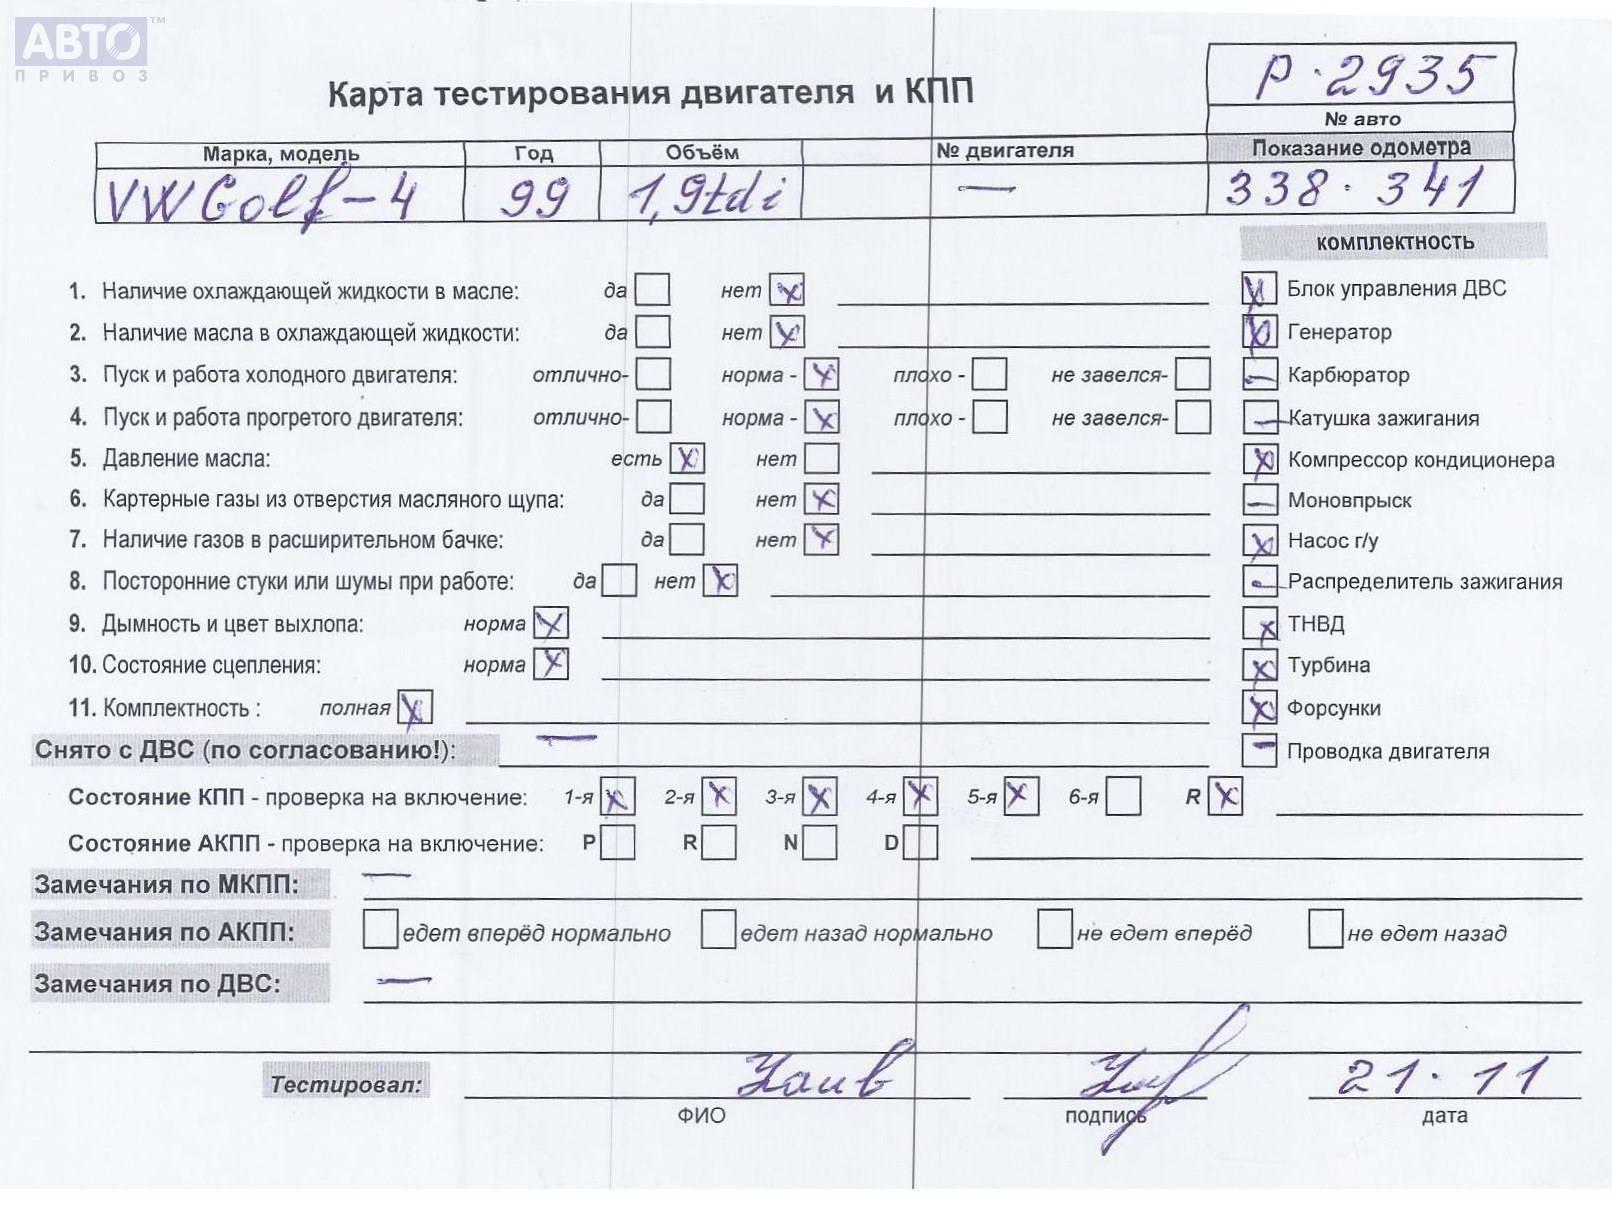 АВТО™
ПРИВОЗ
Р·2935
Карта тестирования двигателя и КПП
№ авто
Марка, модель Год Объём № двигателя Показание одометра
VW Golf-4 99 1,9tdi — 338·341
комплектность
1. Наличие охлаждающей жидкости в масле: да нет x Блок управления ДВС
2. Наличие масла в охлаждающей жидкости: да нет x Генератор
3. Пуск и работа холодного двигателя: отлично- норма - x плохо - не завелся- — Карбюратор
4. Пуск и работа прогретого двигателя: отлично- норма - x плохо - не завелся- — Катушка зажигания
5. Давление масла: есть x нет x Компрессор кондиционера
6. Картерные газы из отверстия масляного щупа: да нет x — Моновпрыск
7. Наличие газов в расширительном бачке: да нет x x Насос г/у
8. Посторонние стуки или шумы при работе: да нет x — Распределитель зажигания
9. Дымность и цвет выхлопа: норма x x ТНВД
10. Состояние сцепления: норма x x Турбина
11. Комплектность : полная x x Форсунки
Снято с ДВС (по согласованию!): — — Проводка двигателя
Состояние КПП - проверка на включение: 1-я x 2-я x 3-я x 4-я x 5-я x 6-я R x
Состояние АКПП - проверка на включение: P R N D
Замечания по МКПП: —
Замечания по АКПП: едет вперёд нормально едет назад нормально не едет вперёд не едет назад
Замечания по ДВС: —
Тестировал: 21·11
ФИО подпись дата